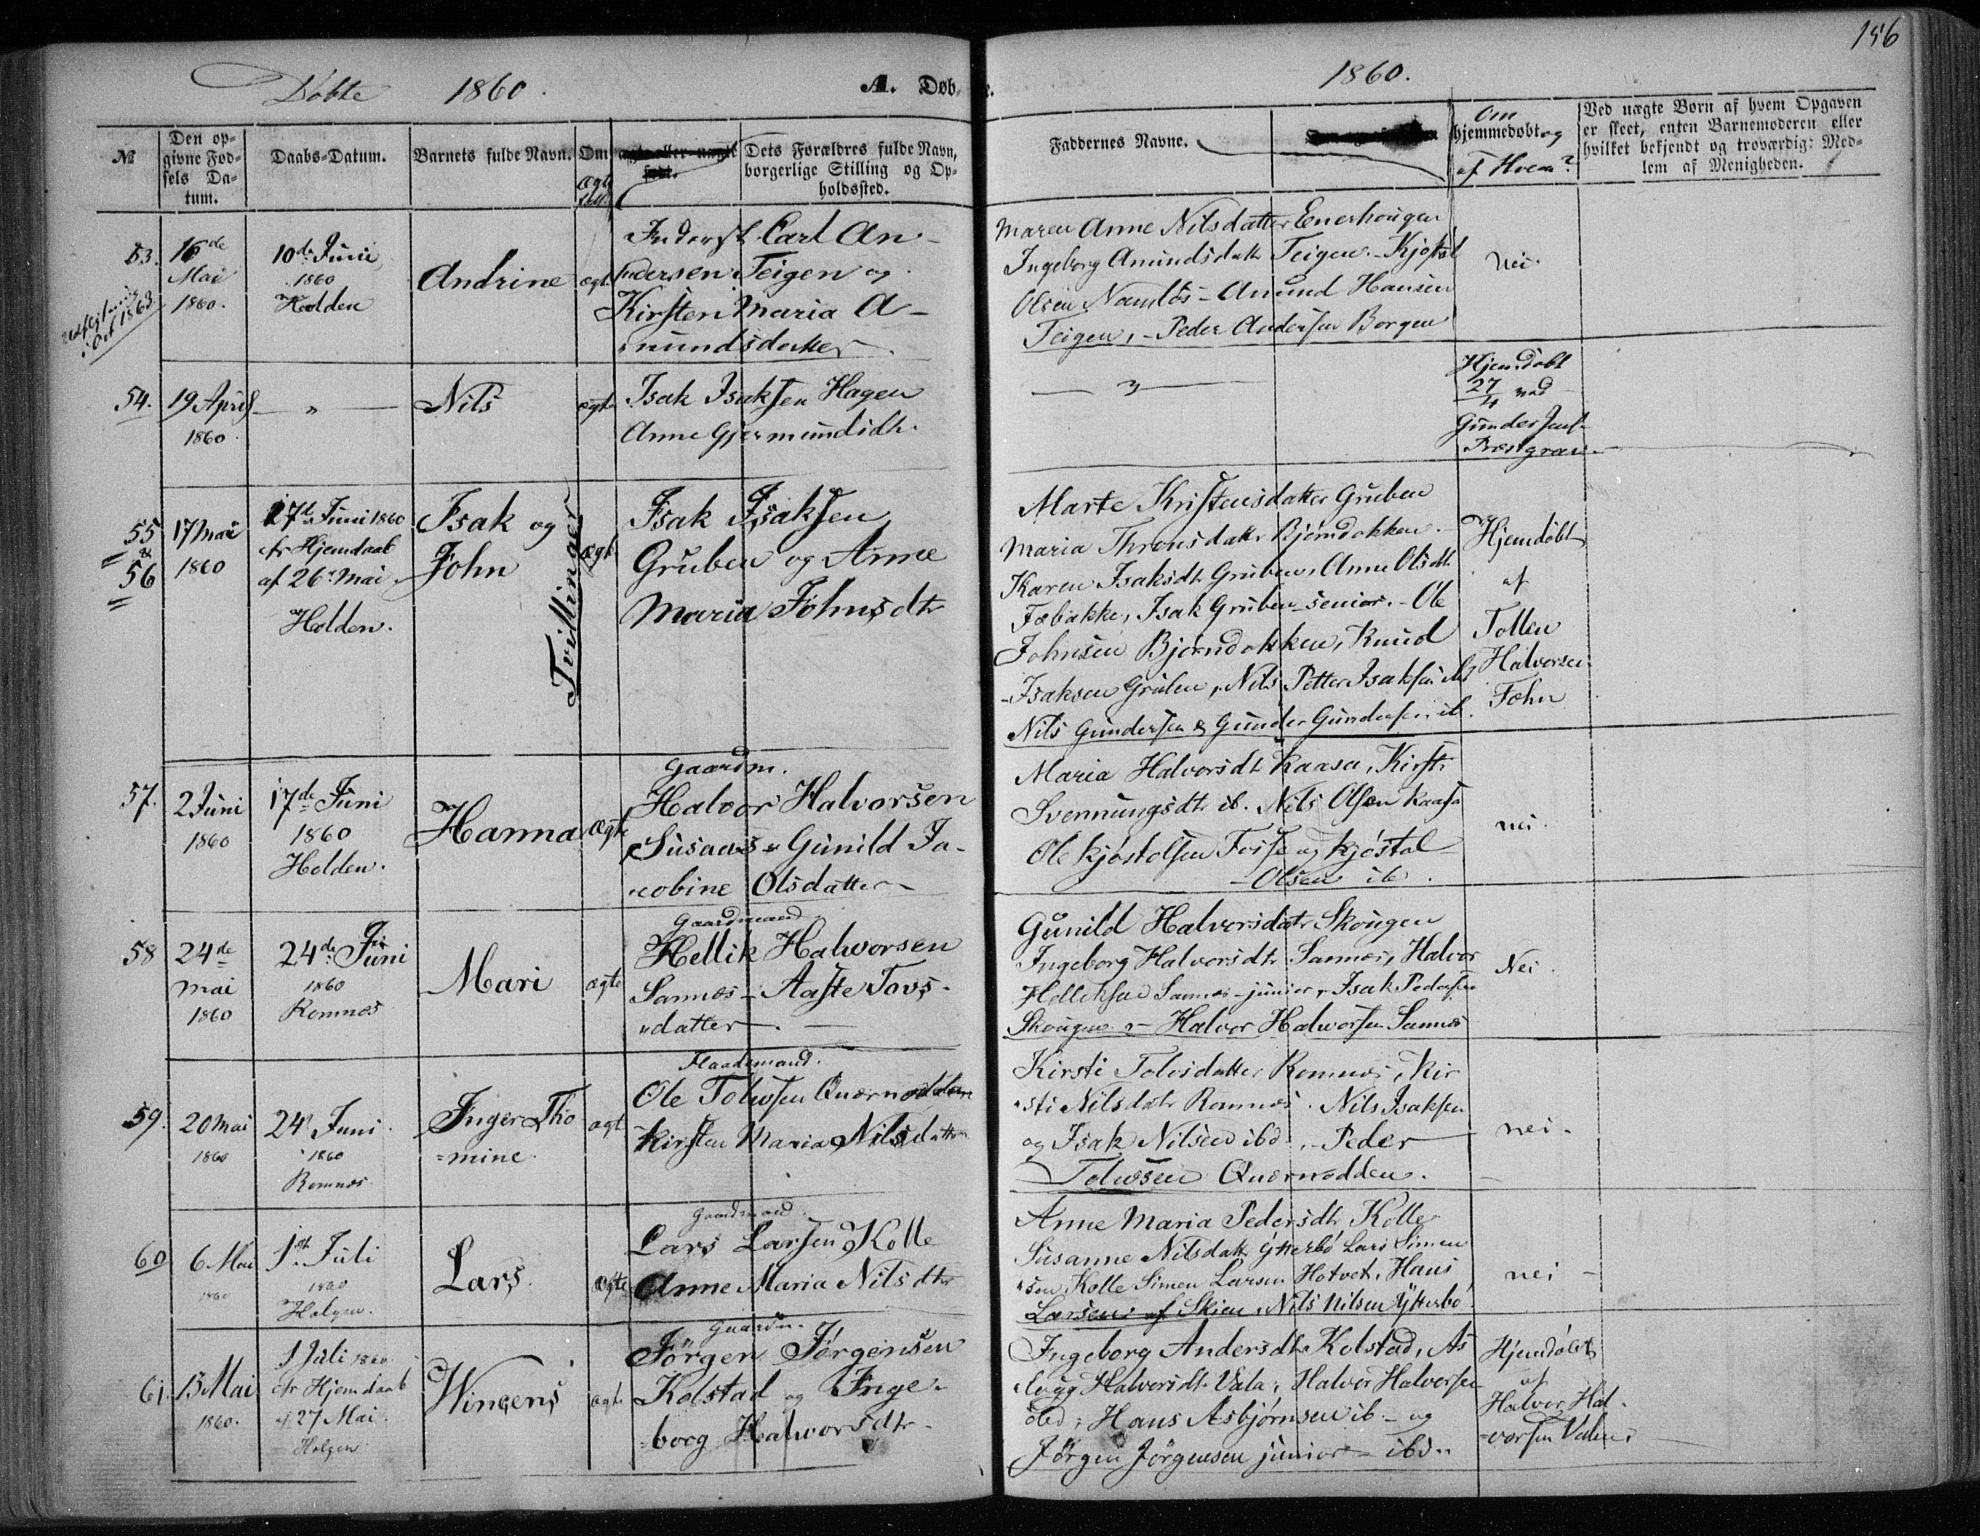 156
Døbte 1860.
A. Døb- e.
1860.
№
Den op-
givne Fød-
sels Da-
tum.
Daabs-Datum.
Barnets fulde Navn.
Om
ægte
ægte eller uægte
født.
Dets Forældres fulde Navn,
borgerlige Stilling og Op-
holdssted.
Faddernes Navne.
Om
hjemmedøbt og
af Hvem?
Ved uægte Børn af hvem Opgaven
er skeet, enten Barnemoderen eller
hvilket bekjendt og troværdig: Med-
lem af Menigheden.
53.
i Oct 1863
16de
Mai
1860.
10de Juni
1860
Holden
Andrine
ægt
Inderst Carl An-
dersen Teigen og
Kirsten Maria A-
mundsdatter
Maren Anne Nilsdatter Enerhougen
Ingeborg Amundsdatt Teigen. Kjøstol
Olsen Namløs - Amund Hansen
Teigen, - Peder Andersen Borgen
Nei.
54.
19 April
1860
— " —
Nils
ægt
Isak Isaksen Hagen
Anne Gjermundsdt.
— " —
Hjemdøbt
27/4 ved
Gunder Jens-
Præstgrav.
55
&
56
17 Mai
1860
17de Juni 1860
fr Hjemdaab
af 26 Mai
Holden.
Isak og
John
Tvillinger
ægt
Isak Isaksen
Gruben og Anne
Maria Johnsdtr
Marte Kristensdatter Gruben
Maria Thronsdatr Bjørndokken.
Karen Isaksdt Gruben, Anne Olsdt
Fæbakke, Isak Gruben senior. - Ole
Johnsen Bjørndokken, Knud
Isaksen Gruben, Nils Petter Isaksen ib
Nils Gundersen & Gunder Gundersen ib.
Hjemdøbt
af
Tollen
Halvorsen
Fæhn
57.
2 Juni
1860
17de Juni
1860
Holden.
Hanna
ægte
Gaardm.
Halvor Halvorsen
Susaas - Gunild Ja-
cobine Olsdatter
Maria Halvorsdt Kaasa, Kirsti
Svennungsdtr ib. Nils Olsen Kaasa
Ole Kjøstolsen Fosse og Kjøstol
- Olsen ib.
nei.
58
24de
Mai
1860
24de Juni
1860
Romnes
Mari
ægte
Gaardmand
Hellik Halvorsen
Sannes - Aaste Tovs-
datter
Gunild Halvorsdatr Skougen
Ingeborg Halvorsdtr Sannes, Halvor
Helliksen Sannes junior, Isak Pedersen
Skougen - Halvor Halvorsen Sannes
Nei.
59.
20 Mai
1860
24 Juni.
1860
Romnes
Inger Tho
=mine.
ægt
Ole Tolvsen Qværnodden
Kirsten Maria Nilsdatter
Kirsti Tolvsdatter Romnes, Kir
sti Nilsdatr Romnes. Nils Isaksen
og Isak Nilsen ibd. - Peder
Tolvsen Qværnodden.
nei.
60
6 Mai
1860
1ste Juli
1860
Helgen.
Lars.
ægte
Gaardmand.
Lars Larsen Kolle
Anne Maria Nilsdtr
Anne Maria Pedersdtr Kolle
Susanne Nilsdatt Ytterbø Lars Simen
sen Kolle Simen Larsen Hotvet. Hans
Larsen af Skien, Nils Nilsen Ytterbø
nei
61.
15 Mai
1860.
1 Juli 1860
fr Hjemdaab
af 27 Mai.
Helgen
Wincens
ægt
Gaardm.
Jørgen Jørgensen
Kolstad og Inge-
=borg Halvorsdtr
Ingeborg Andersdtr Kolstad, As
laug Halvorsdt Vala, Halvor Halvorsen
ibd, Hans Asbjørnsen ib. - og
Jørgen Jørgensen junior - ibd.
Hjemdøbt
af
Halvor Hal-
=vorsen Valen.